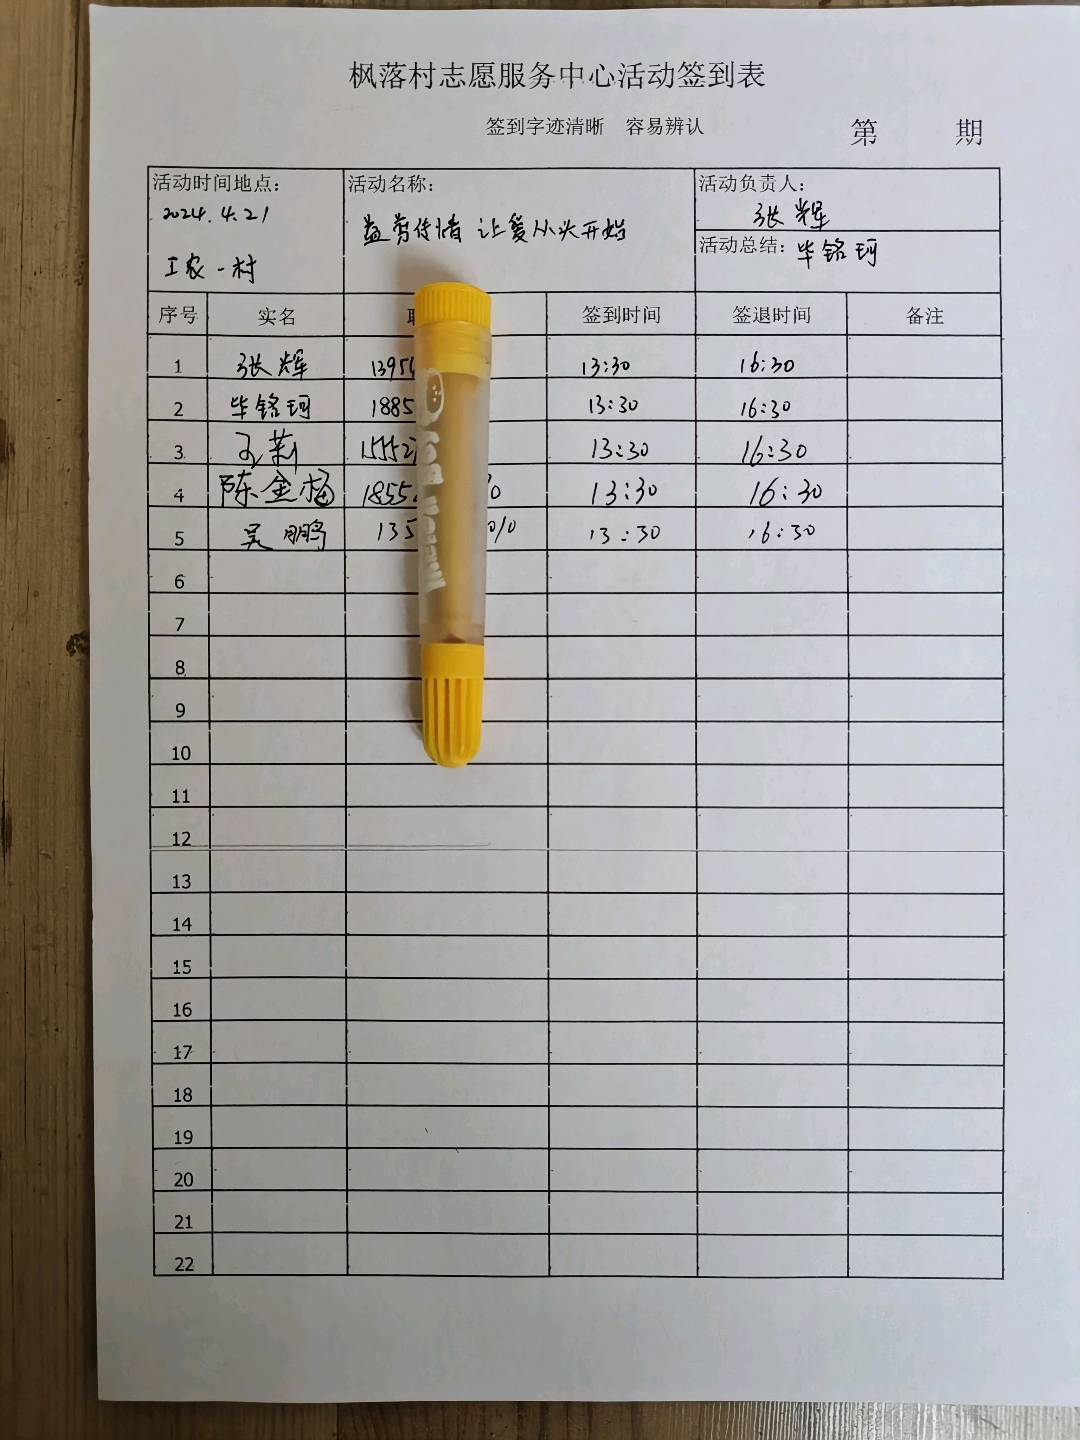 枫落村志愿服务中心活动签到表
签到字迹清晰 容易辨认
第 期
活动时间地点: 活动名称: 活动负责人:
2024.4.21 益剪传情 让爱从头开始 张辉
工农一村 活动总结: 毕铭珂
序号 实名 签到时间 签退时间 备注
1 张辉 1395 13:30 16:30
2 毕铭珂 1885 13:30 16:30
3 王莉 15552 13:30 16:30
4 陈金梅 1855 0 13:30 16:30
5 吴鹏 135 13:30 16:30
6
7
8
9
10
11
12
13
14
15
16
17
18
19
20
21
22